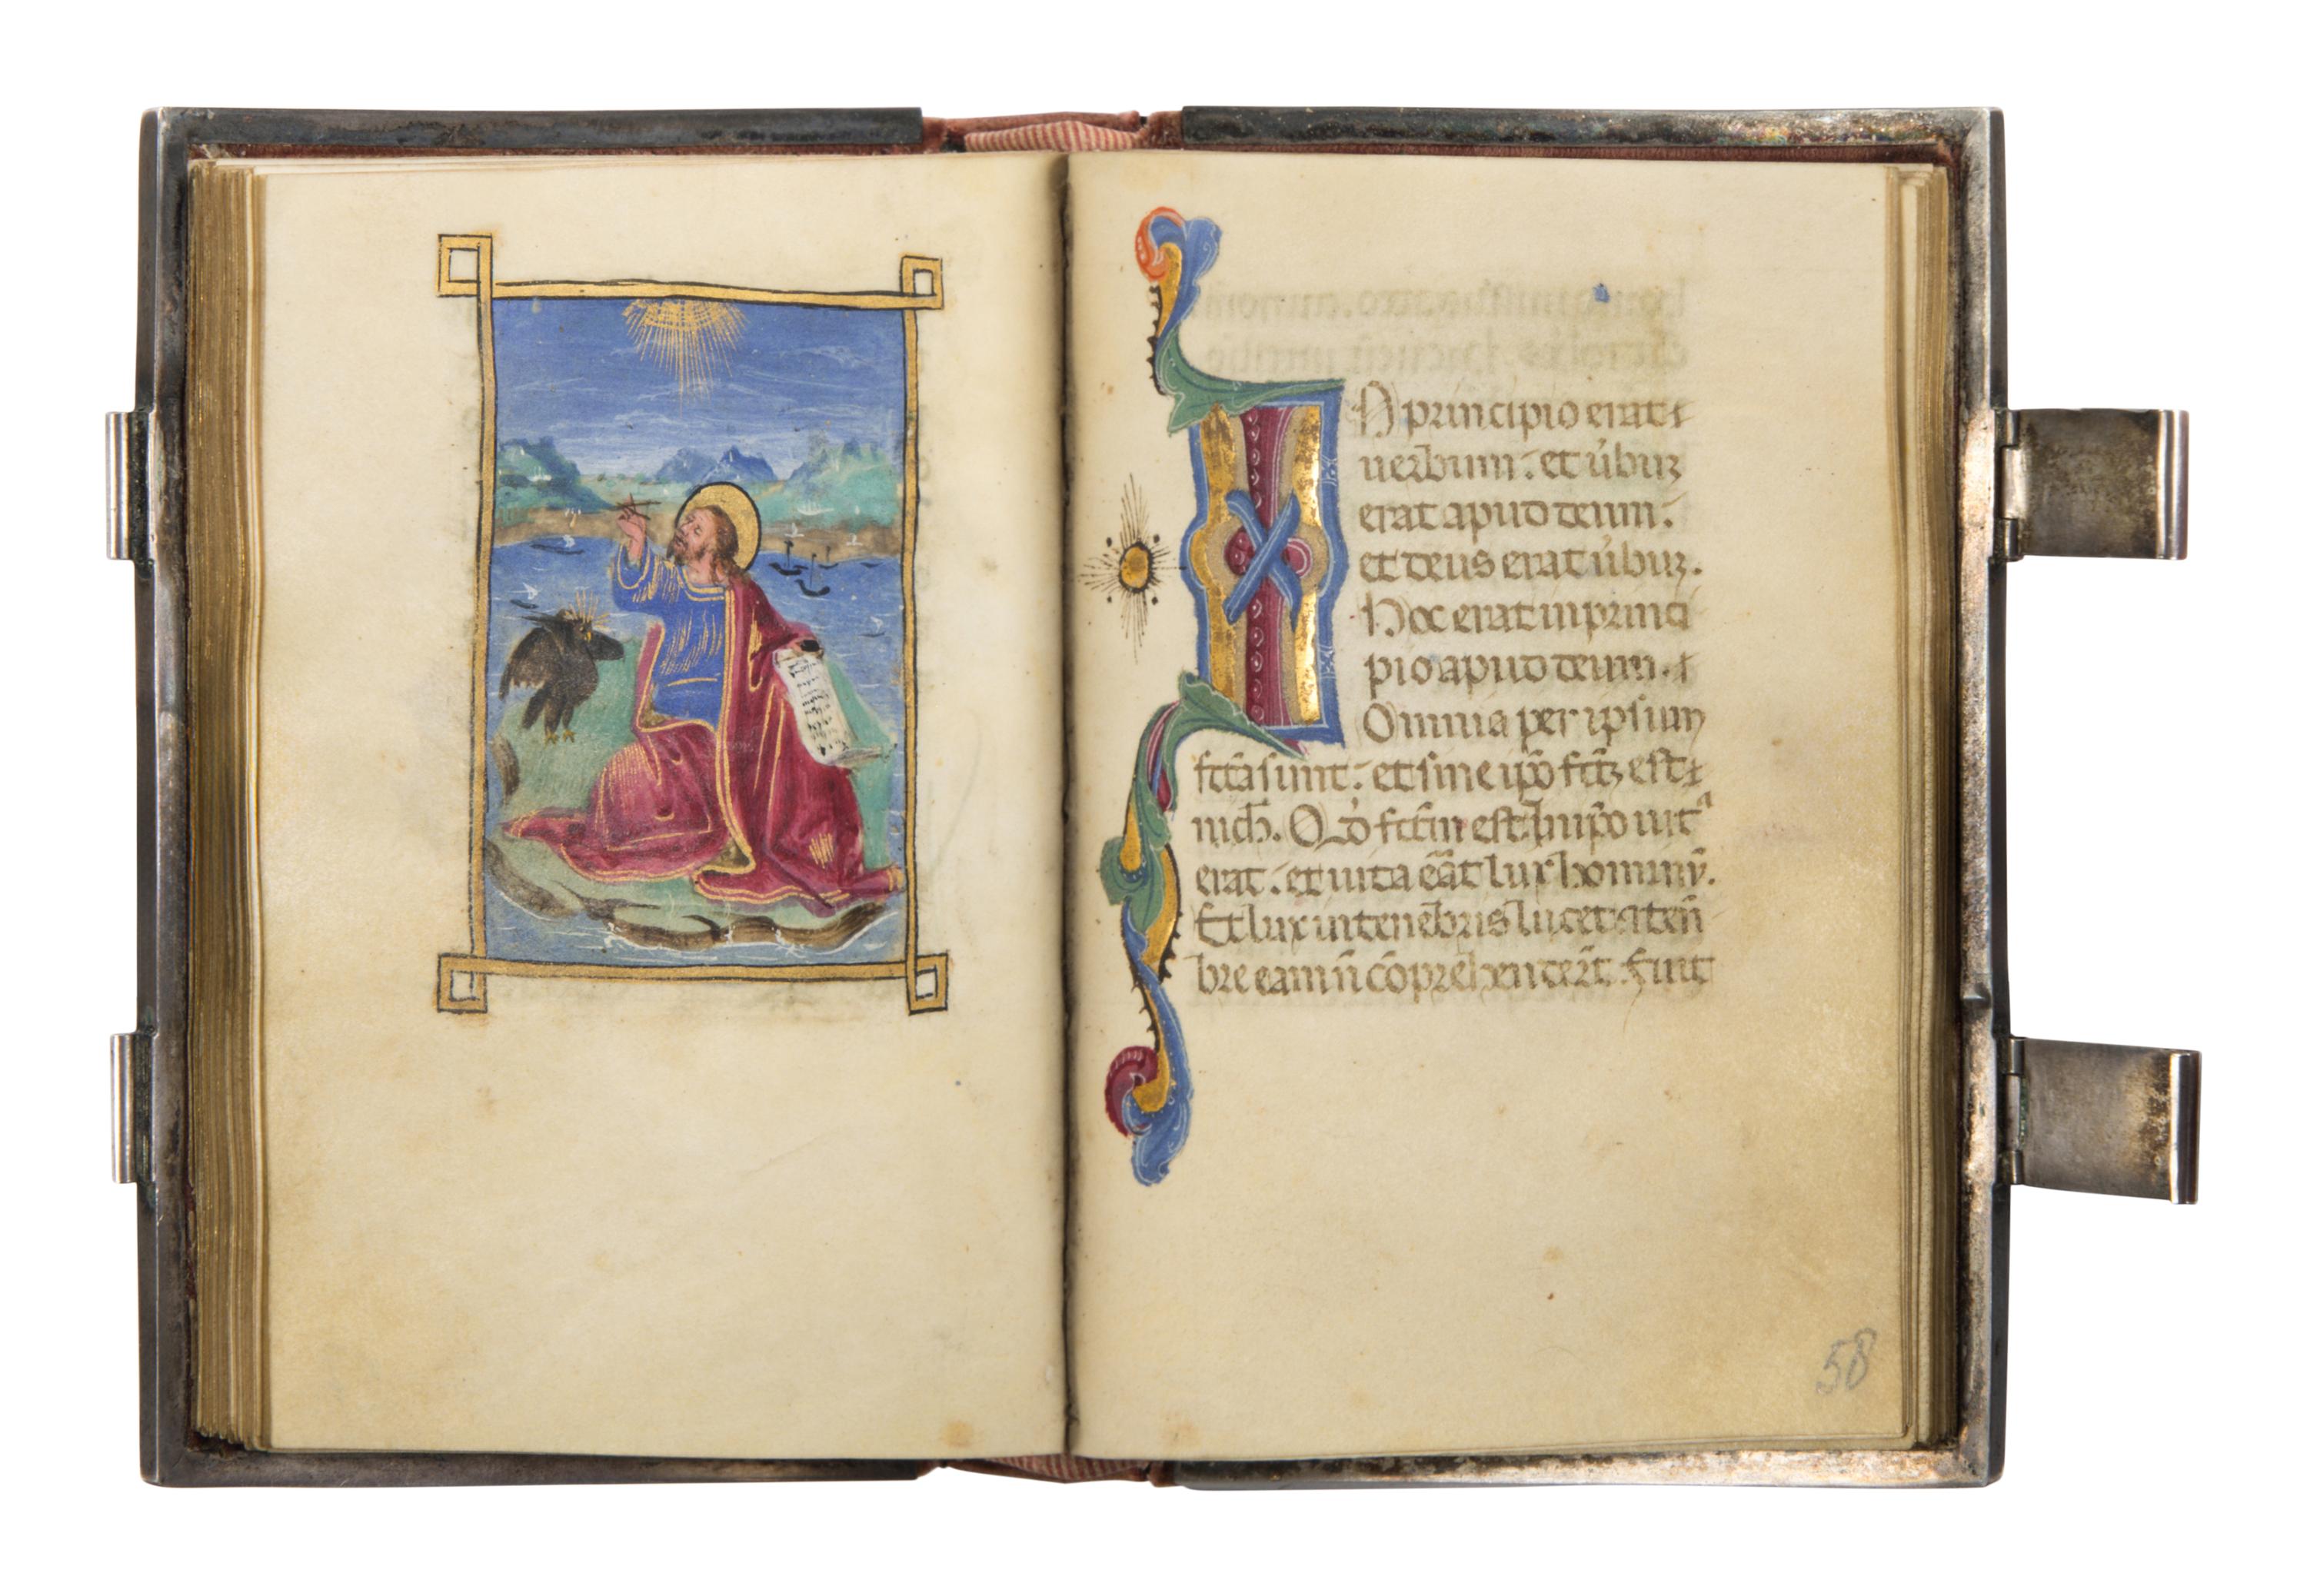 IN principio erat
uerbum. et ủbuꝫ
erat apud deum.
et deus erat ủbuꝫ.
Hoc erat in princi
pio apud deum.
Omnia per ipsum
fc̄ta sunt. et sine ip̄o fc̄tꝫ est
nich̄. Qd̓ fc̄tm̄ est in ip̄o uitᵃ
erat. et uita ēat lux hominū.
Et lux in tenebris lucet ⁊ teneb̄
bre eam n̄ cōprehender̄t. Fuit
58